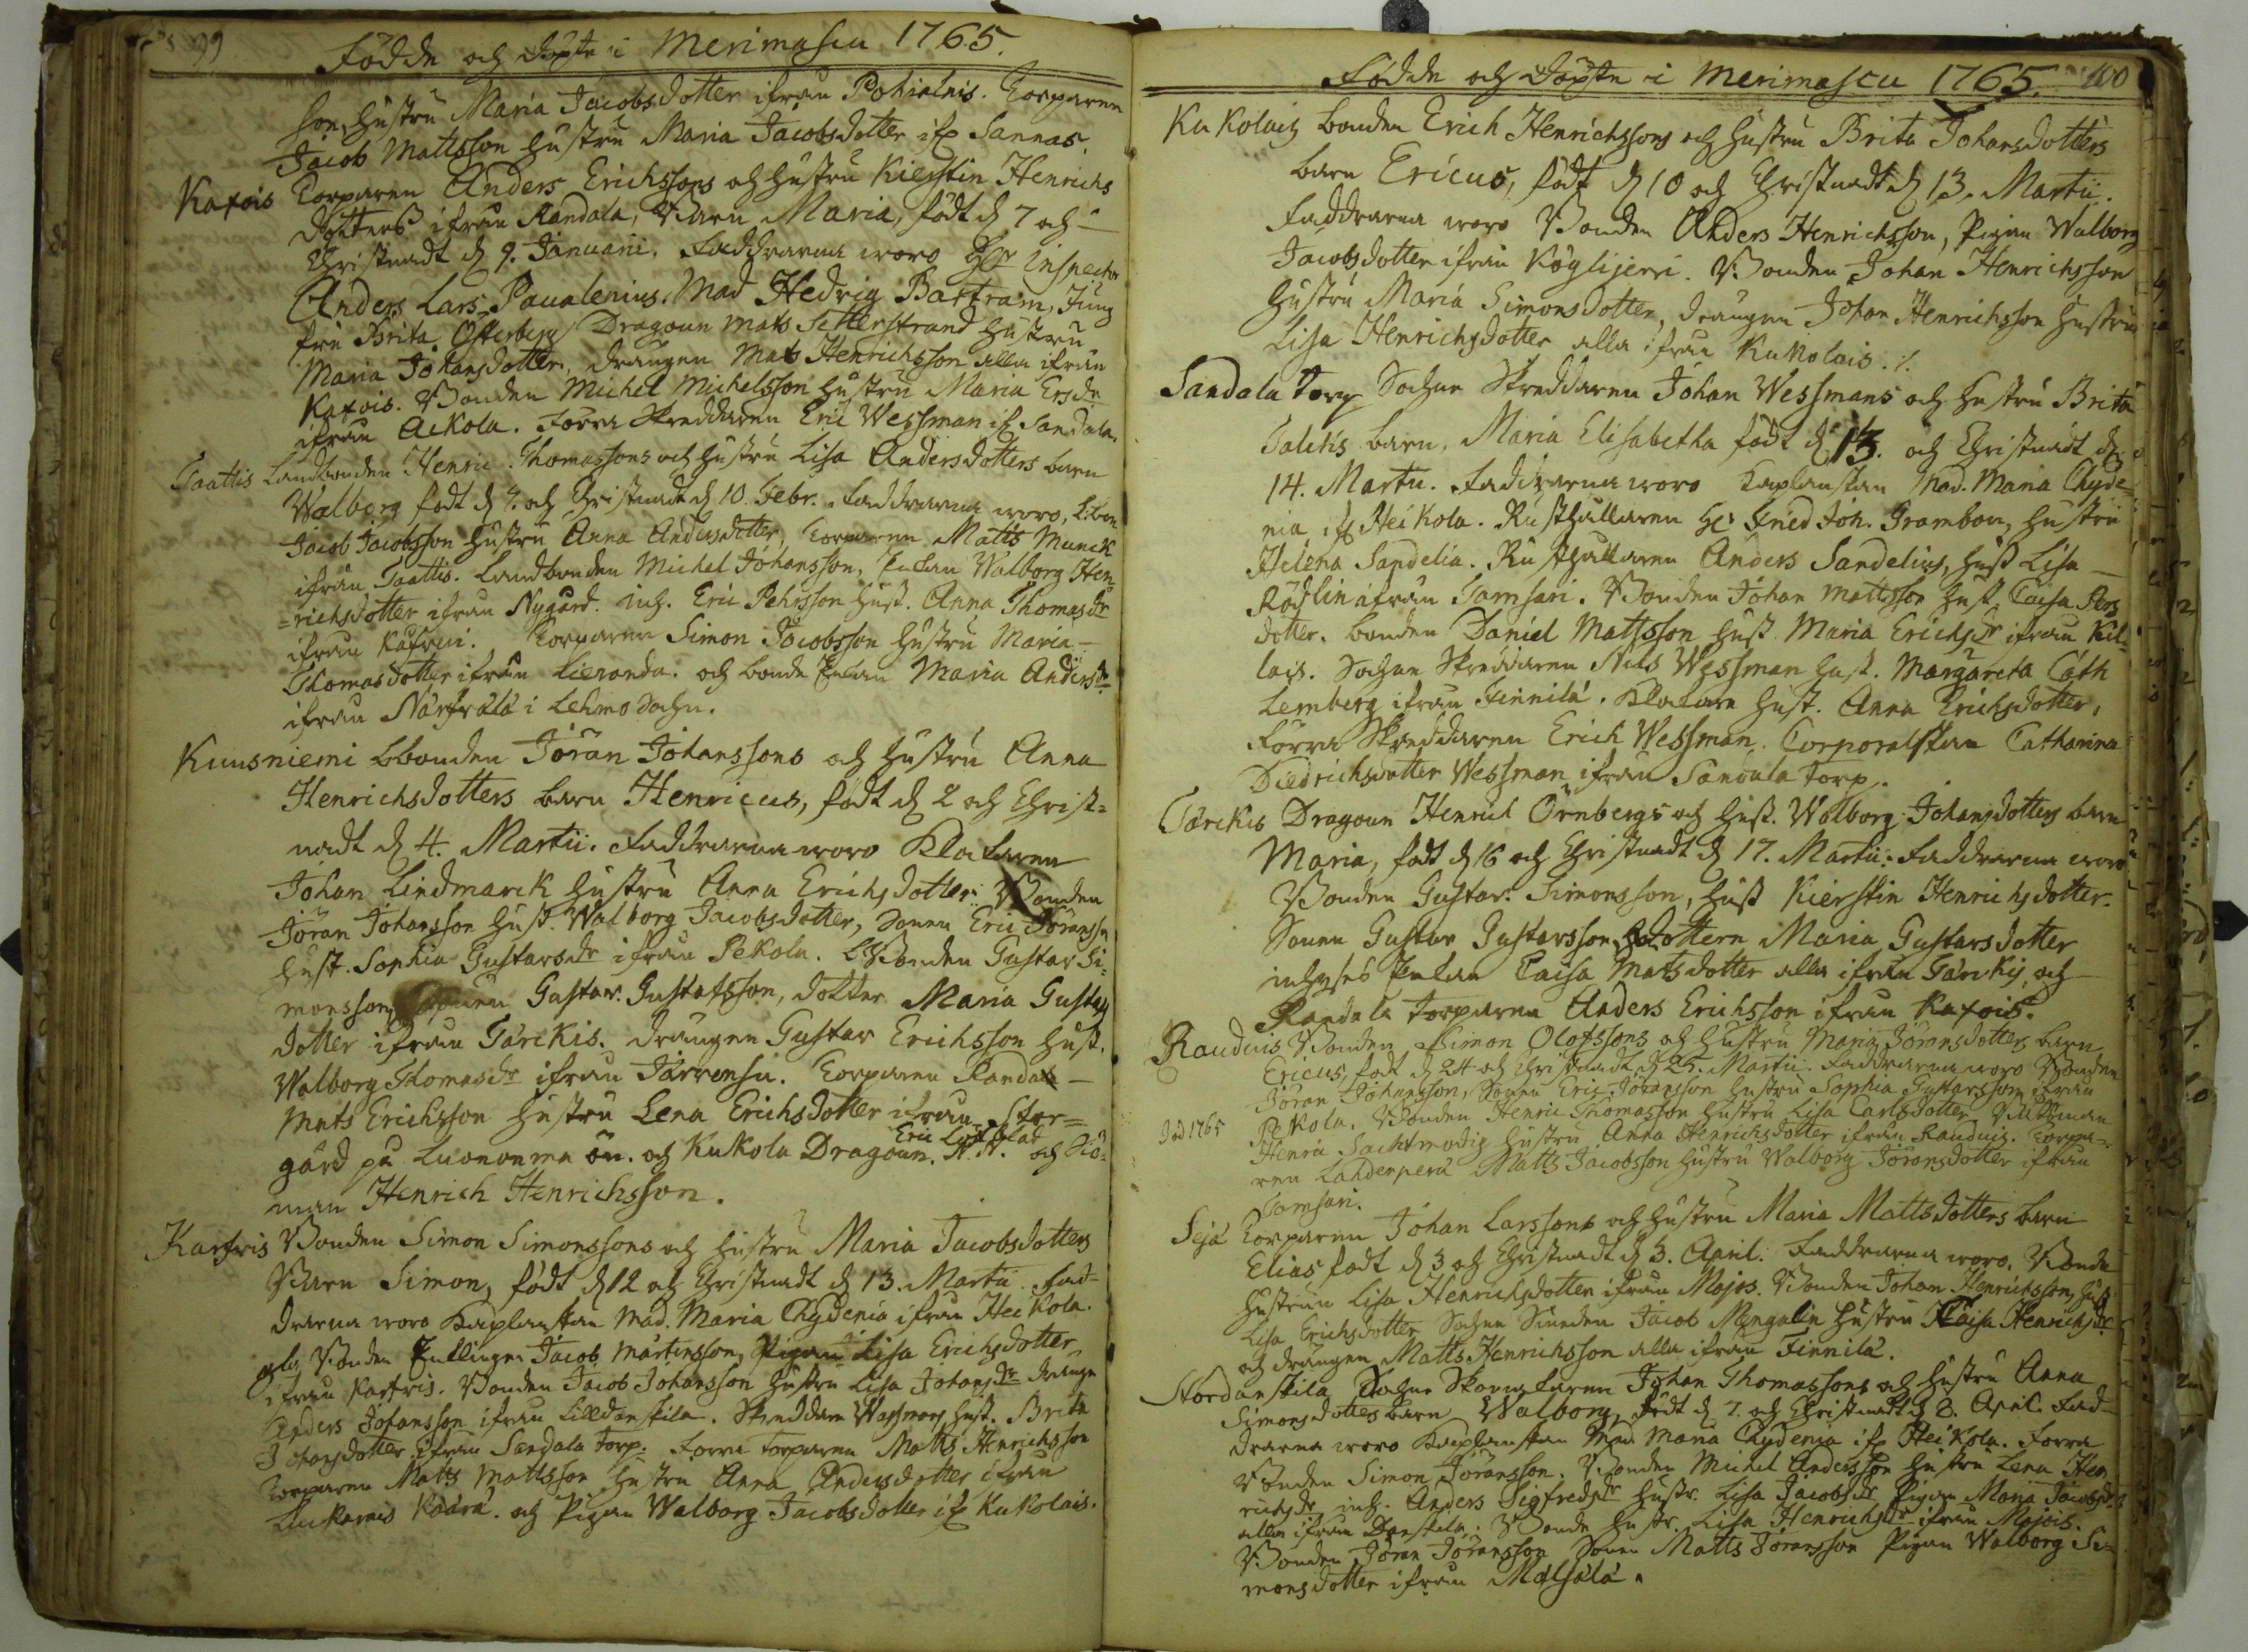 99
Födde och Döpte i Merimascu 1765.
son, hustru Maria Jacobsdotter ifrån Pohialais. Torparen
Jacob Mattsson hustru Maria Jacobsdotter if Sannas.
Kaxois Torparen Anders Erichssons och hustru Kierstin Henrichs
dotters ifrån Randala, Barn Maria, födt d 7 och
Christnadt d 9. Januarii. Faddrarna woro Hr Inspector
Anders Lars Paualenius. Mad Hedvig Bartram, Jung
fru Brita Osterberg Dragoun Mats Setterstrand hustru
Maria Johansdotter, drängen Mats Henrichsson alla ifrån
Kaxois. Bonden Michel Michelsson hustru Maria Ersdr
ifrån Aikola. Förra Skreddaren Eric Wessman if Sandala.
Taattis Landbonden Henric Thomassons och hustru Lisa Andersdotters barn
Walborg födt d 9. och Christnadt d 10 Febr. Faddrarna woro, L:bon
Jacob Jacobsson hustru Anna Andersdotter, Torparen Matts Munck
ifrån Taattis. Landbonden Michel Johansson, Enkan Walborg Hen
=richsdotter ifrån Nygård. inh. Eric Pehrsson hust. Anna Thomasdr
ifrån Kafrui. Torparen Simon Jacobsson hustru Maria
Thomasdotter ifrån Lieranda. och bonde Enkan Maria Andersdr
ifrån Närfrälä i Lehmo Sochn.
Kuusniemi Lbonden Jöran Johanssons och hustru Anna
Henrichsdotters barn Henricus, födt d 2 och Christ=
nadt d 4. Martii. Faddrarna woro Klockaren
Johan Lindmarck hustru Anna Erichsdotter. Bonden
Jöran Johansson hust. Walborg Jacobsdotter, Sonen Eric Jöranss
hust. Sophia Gustavsdr ifrån Pekola. LBonden Gustav Si=
monsson, Sonen Gustav Gustafsson, dotter Maria Gustavs
dotter ifrån Tärckis. Drängen Gustav Erichsson hust.
Walborg Thomasdr ifrån Järrensu. Torparen Randala
Mats Erichsson hustru Lena Erichsdotter ifrån Stor=
gård på Luononma ön. och Kukola Dragoun. Eric Löfblad N.N. och Siö=
man Henrich Henrichsson.
Karfvis Bonden Simon Simonssons och hustru Maria Jacobsdotters
Barn Simon, födt d 12 och Christnadt d 13. Martii. Fad=
drarna woro Kaplanskan Mad. Maria Chydenia ifrån Heikola.
Bonden Enklingen Jacob Mårtensson, Pigan Lisa Erichsdotter
ifrån Karfvis. Bonden Jacob Johansson hustru Lisa Johansdr dränge
Anders Johansson ifrån Lilldanskila. Skreddare Wessmans hust. Brita
Johansdotter ifrån Sandala torp. Förra torparen Matts Henrichsson
Torparen Matts Mattsson hustru Anna Andersdotter ifrån
Luckarais Kåårå. och Pigan Walborg Jacobsdotter if Kukolais.
Födde och Döpte i Merimascu 1765. 100
Kukolais bonden Erich Henrichssons och hustru Brita Johansdotters
barn Ericus, födt d 10 och Christnadt d 13. Martii.
Faddrarna woro Bonden Anders Henrichsson, Pigan Walborg
Jacobsdotter ifrån Köglijerri. Bonden Johan Henrichsson
hustru Maria Simonsdotter, drängen Johan Henrichsson hustru
Lisa Henrichsdotter alla ifrån Kukolais.
Sandala torp Sochne Skreddaren Johan Wessmans och hustru Brita
Barn, Maria Elisabetha födt d 13. och Christnadt d
14. Martii. Faddrarna woro Kaplanskan Mad. Maria Chyde=
nia if Heikola. Rusthållaren Johan Grambou, hustru
Helena Sandelia. Rusthållaren Anders Sandelius, hust Lisa
Rödlin ifrån Samsari. Bonden Johan Mattsson hust Caisa Pers
dotter. bonden Daniel Mattsson hust Maria Erichsdr ifrån Kil=
lais. Sochne Skreddaren Nils Wessman hust. Margareta Cath
Lemberg ifrån Finnilä. Klockare hust. Anna Erichsdotter,
Förra Skreddaren Erich Wessman. Corporalskan Catharina
Diedrichsdotter Wessman ifrån Sandala torp.
Tärckis Dragoun Henric Örnbergs och hust. Walborg Johansdotters barn
Maria, födt d 16 och Christnadt d 17. Martii. Faddrarna woro
Bonden Gustav Simonsson, hust Kierstin Henrichsdotter.
Sonen Gustav Gustavsson, Dottern Maria Gustavsdotter
inhyses Enkan Caisa Matsdotter alla ifrån Tärckis, och
Randala torparen Anders Erichsson ifrån Kaxois.
Rauduis Bonden Simon Olofssons och hustru Maria Jöransdotters barn
Ericus, födt d 24 och Christnadt d 25. Martii. Faddrarna woro Bonden
Jöran Johansson, Sonen Eric Jöransson hustru Sophia Gustavsson ifrån
Död 1765 Pekola. Bonden Henric Thomasson hustru Lisa Carlsdotter
Henric Sachtmodig hustru Anna Henrichsdotter ifrån Rauduis. Torpa=
ren Lahdenperä Matts Jacobsson hustru Walborg Jöransdotter ifrån
Samsari.
Sejä Torparen Johan Larssons och hustru Maria Mattsdotters barn
Elias födt d 3 och Christnadt d 3. April. Faddrarna woro. Bonde
hustrun Lisa Henrichsdotter ifrån Mojos. Bonden Johan Henrichsson, hust
Lisa Erichsdotter Sochne Smeden Jacob Mengalin hustru Caisa Henrichsdr
och drängen Matts Henrichsson alla ifrån Finnilä.
Stordanskila Sochne Skomakaren Johan Thomassons och hustru Anna
Simonsdotters barn Walborg, födt d 7. och Christnadt d 8. April. Fad=
drarna woro Kaplanskan Mad Maria Chydenia if Heikola. Förra
Bonden Simon Jöransson. Bonden Michel Andersson hustru Lena Hen
richsdr inh. Anders Sigfredsdr hustr. Lisa Jacobsdr Pigan Maria Jacobsdr
alla ifrån Danskila. Bonde hustr. Lisa Henrichsdr ifrån Mojois.
Bonden Jöran Jöransson Sonen Matts Jöransson Pigan Walborg Si=
monsdotter ifrån Mälsälä.